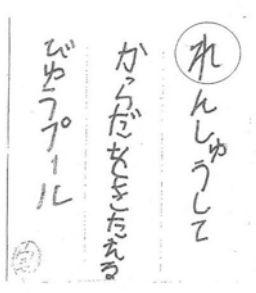 れんしゅうして
からだをきたえる
びゅうプール